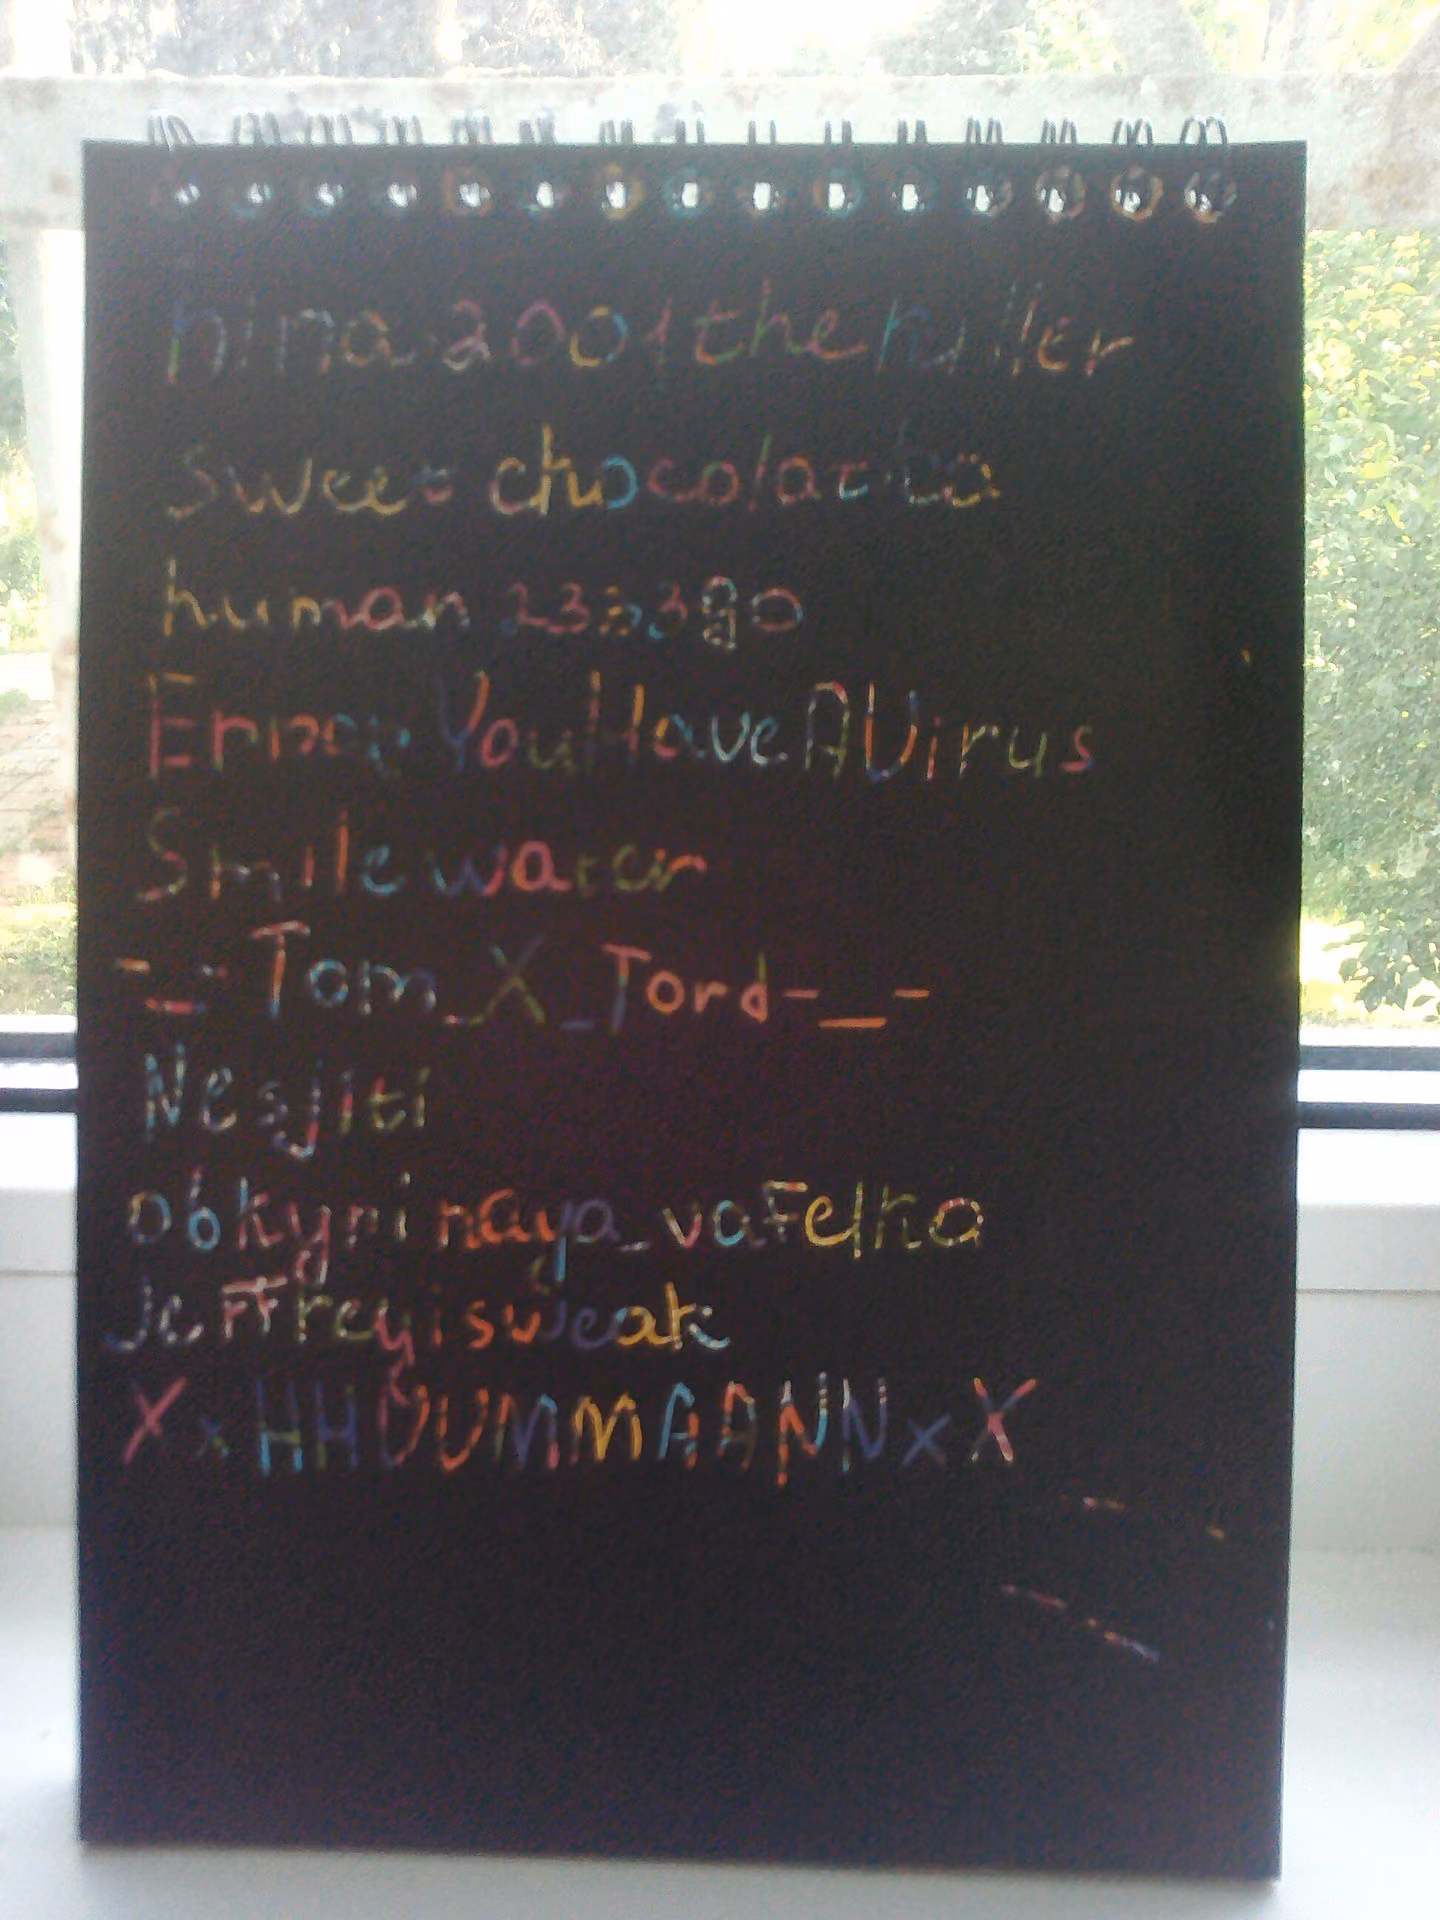 nina2001thekiller
sweet chocolatka
human
ErrorYouHaveAVirus
Smilewater
-_-Tom_X_Tord-_-
Nesjiti
obkyrinaya_vafelka
jeffreyisweak
XxHHUUMMAANNxX